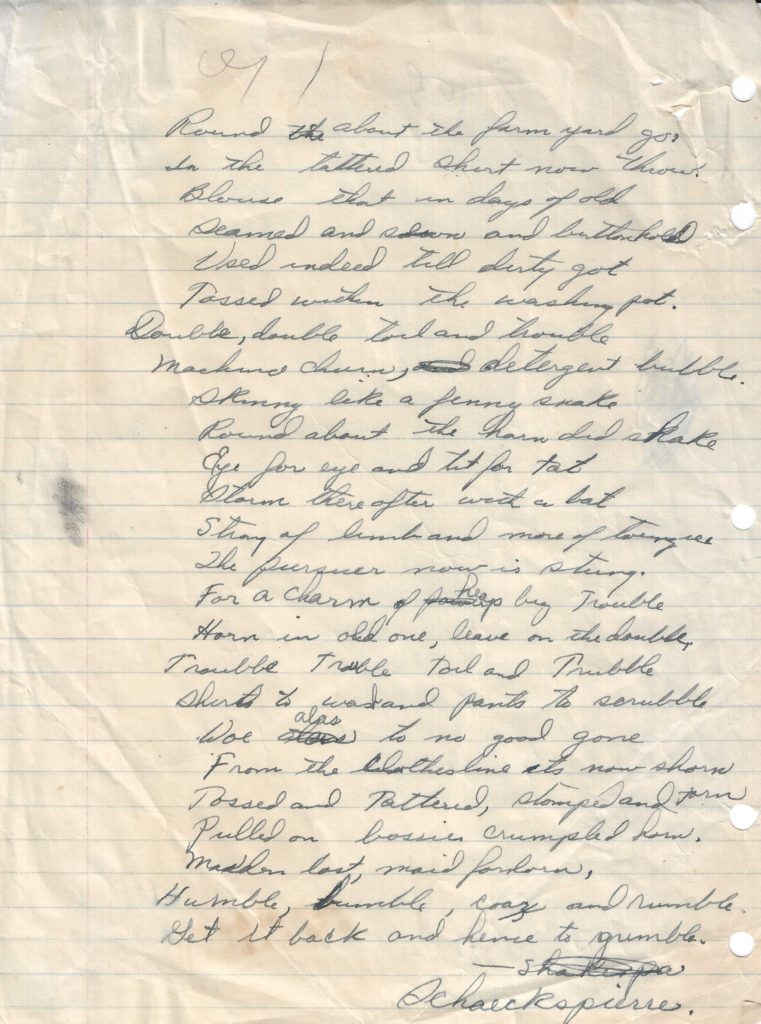 Round the about the farm yard go:
In the tattered shirt now throw.
Blouse that in days of old
Seamed and sewn and buttonholed
Used indeed till dirty got
Tossed within the washing pot.
Double, double toil and trouble
Machine churn, and detergent bubble.
Skinny like a fenny snake
Round about the horn did shake
Eye for eye and tit for tat
Storm thereafter with a bat
Strong of limb and more of
The pursuer now is stung.
For a charm of heap big Trouble
Horn in old one, leave on the double,
Trouble Truble toil and Trubble
Shirts to wash and pants to scrubble
Woe alas to no good gone
From the clothesline its now shorn
Tossed and Tattered, stomped and torn
Pulled on bossies crumpled horn.
Maiden lost, maid forlorn,
Humble, bumble, coax and rumble.
Get it back and hence to grumble.
— Shakespa
Schaeckspierre.